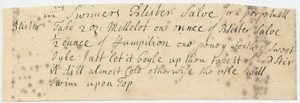 Sommers Blister Salve for a perpetuall
Blister Take 2 oz: Mellelot one ounce of Blister Salve
2 ounce of one penny worth of sweet
oyle Just let it boyle up then take it of & stir
it till almost Cold otherwise the oyle will
swim upon Top